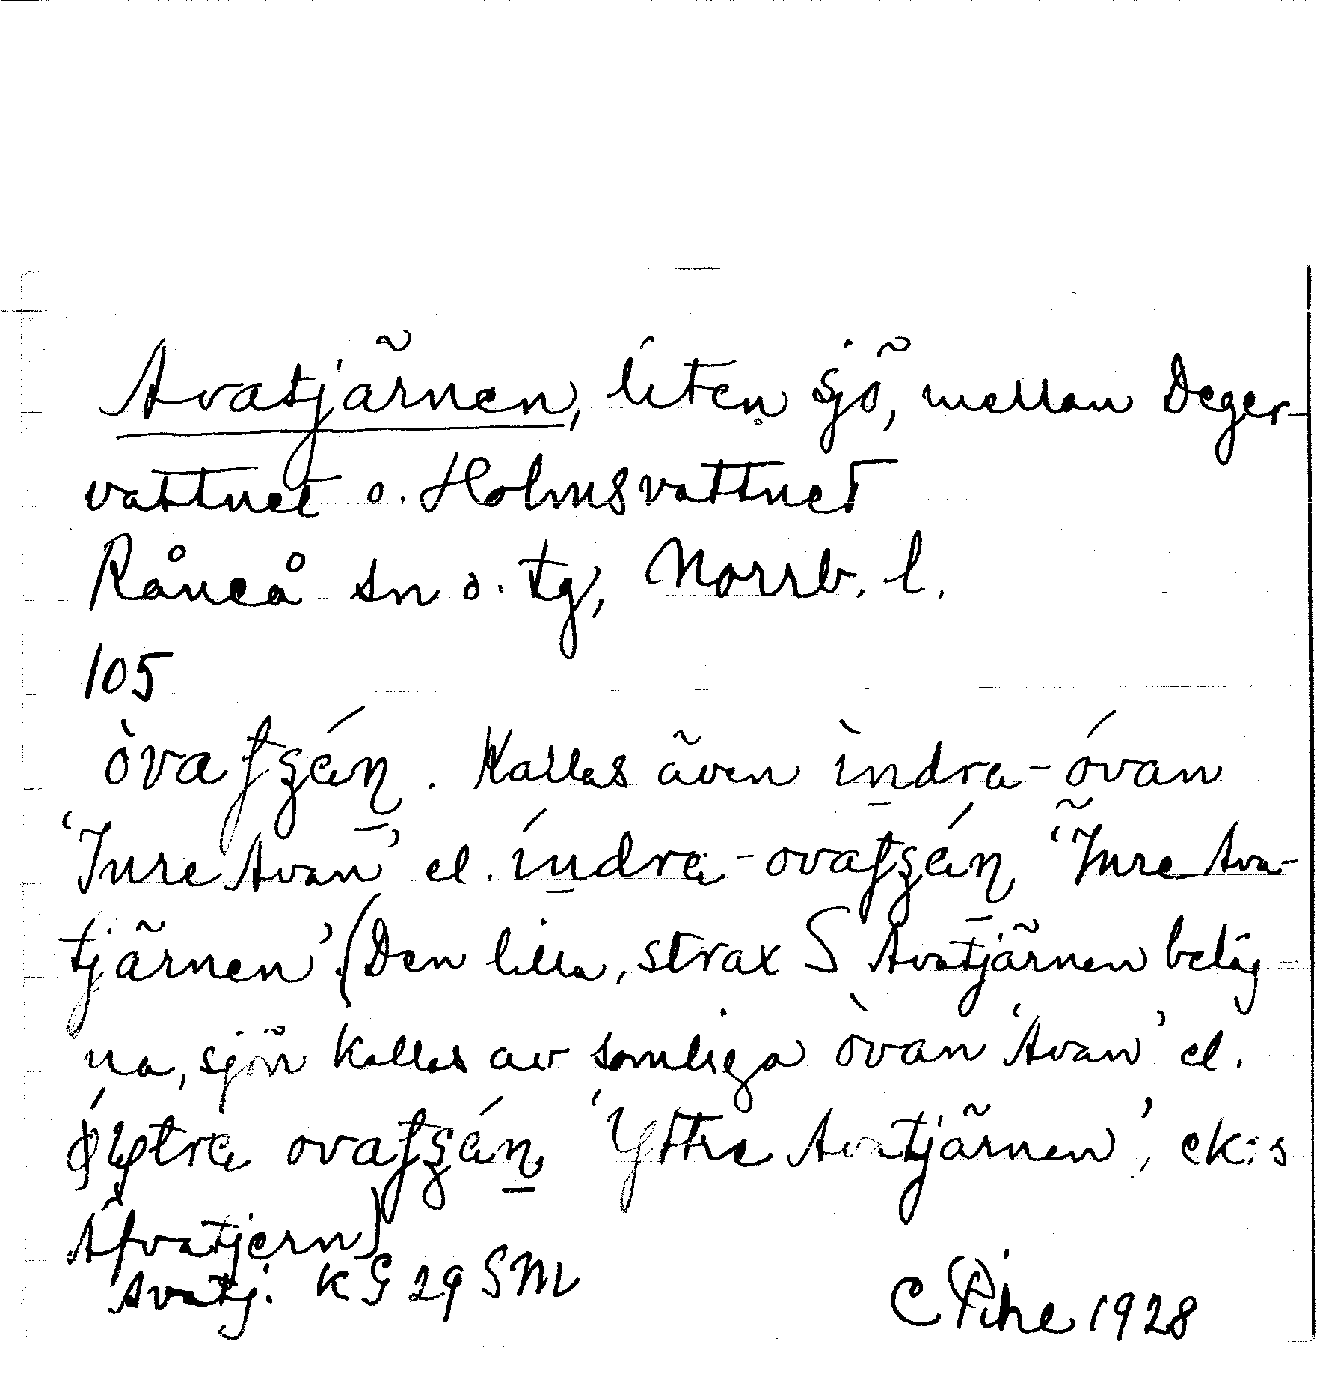 Avatjärnen, liten sjö, mellan Deger-
vattnet o. Holmsvattnet
Råneå sn o. tg, Norrb. l.
105
òva . Kallas även ìndra-óvan
'Inre Avan' el. índra- 'Inre Ava-
tjärnen'. (Den lilla, strax S Avatjärnen beläg-
na, sjön kallas av somliga òvan 'Avan' el.
'Yttre Avatjärnen', ek:s
Afvatjern)
Avatj. KG 29 SM
C Pihl 1928